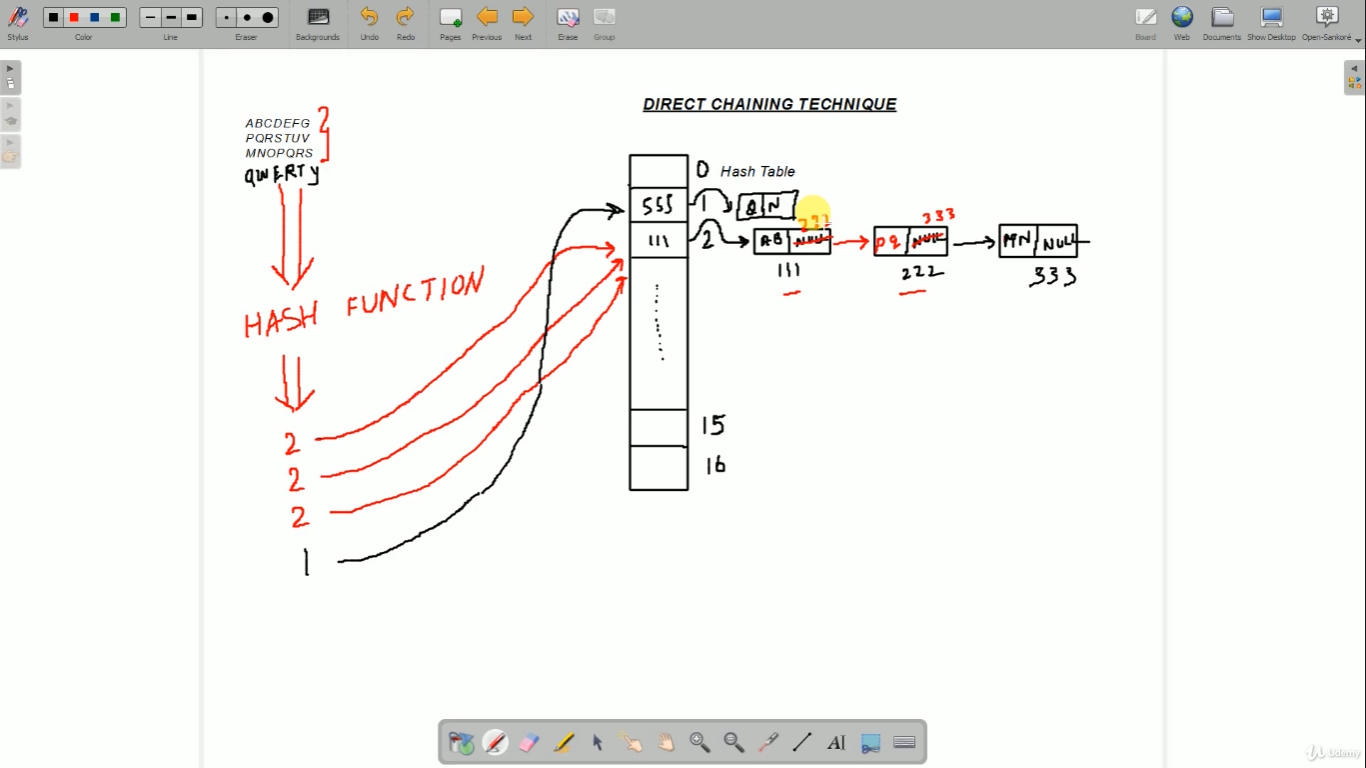 Stylus
Color
Line
Eraser
Backgrounds
Undo
Redo
Pages
Previous
Next
Erase
Group
Board
Web
Documents
Show Desktop
Open-Sankoré
DIRECT CHAINING TECHNIQUE
ABCDEFG
PQRSTUV
MNOPQRS
QWERTY
HASH FUNCTION
2
2
2
1
0 Hash Table
555 1 Q N
222 333
111 2 AB NULL PQ NULL MN NULL
111 222 333
15
16
AI
Udemy